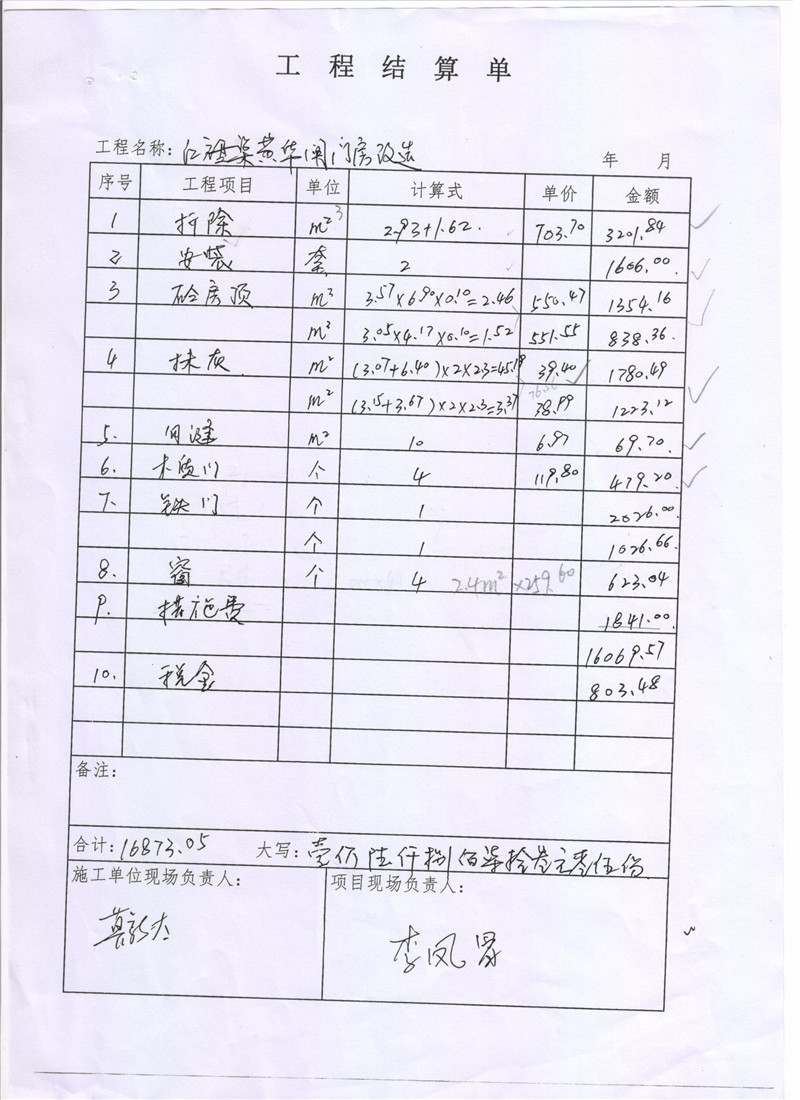 工程结算单
工程名称：仁祖渠黄华闸门房改造
年 月
序号 工程项目 单位 计算式 单价 金额
1 拆除 m³ 2.93+1.62. 703.70 3201.84
2 安装 套 2 1606.00
3 砼房顶 m³ 3.57×6.90×0.10=2.46 550.47 1354.16
m³ 3.05×4.17×0.10=1.52 551.55 838.36
4 抹灰 m² (3.07+6.40)×2×2.3=45.19 39.40 1780.49
m² (3.15+3.67)×2×2.3=3.37 38.99 1223.12
5. m² 10 6.97 69.70
6. 木质门 个 4 119.80 479.20
7. 铁门 个 1 2026.00
个 1 1026.66
8. 窗 个 4 2.4m²×259.60 623.04
9. 措施费 1841.00
16069.57
10. 税金 803.48
备注：
合计：16873.05 大写：壹万陆仟捌佰柒拾叁元零伍分
施工单位现场负责人： 项目现场负责人：
李凤